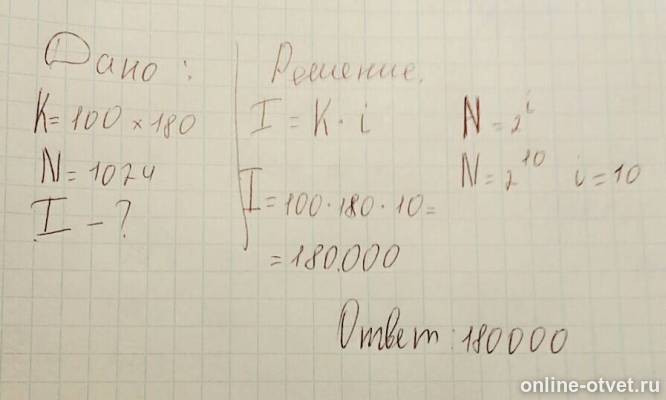 Дано:
K=100×180
N=1024
I-?
Решение.
I=K·i
N=2^i
N=2^10 i=10
I=100·180·10=
=180.000
Ответ:180000
online-otvet.ru